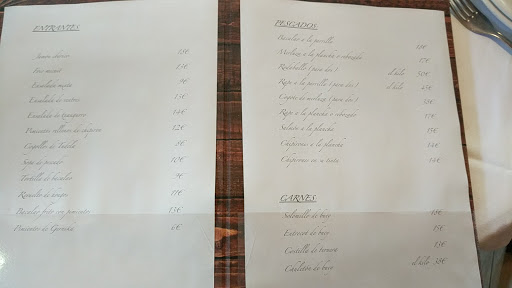 ENTRANTES
Jamon iberico 18€
Foie micuit 15€
Ensalada mixta 9€
Ensalada de 13€
Ensalada de txangurro 14€
Pimientos rellenos de 12€
Cogollos de Tudela 8€
Sopa de pescado 10€
Tortilla de bacalao 9€
Revuelto de hongos 11€
Bacalao frito con pimientos 13€
Pimientos de Gernika 6€
PESCADOS
Bacalao a la parrilla 18€
Merluza a la plancha o rebozada 17€
Rodaballo (para dos) el kilo 50€
Rape a la parrilla (para dos) el kilo 45€
Cogote de merluza (para dos) 38€
Rape a la plancha o rebozado 17€
Salmon a la plancha 15€
Chipirones a la plancha 14€
Chipirones en su tinta 14€
CARNES
Solomillo de buey 18€
Entrecot de buey 15€
Costilla de ternera 13€
Chuleton de buey el kilo 38€